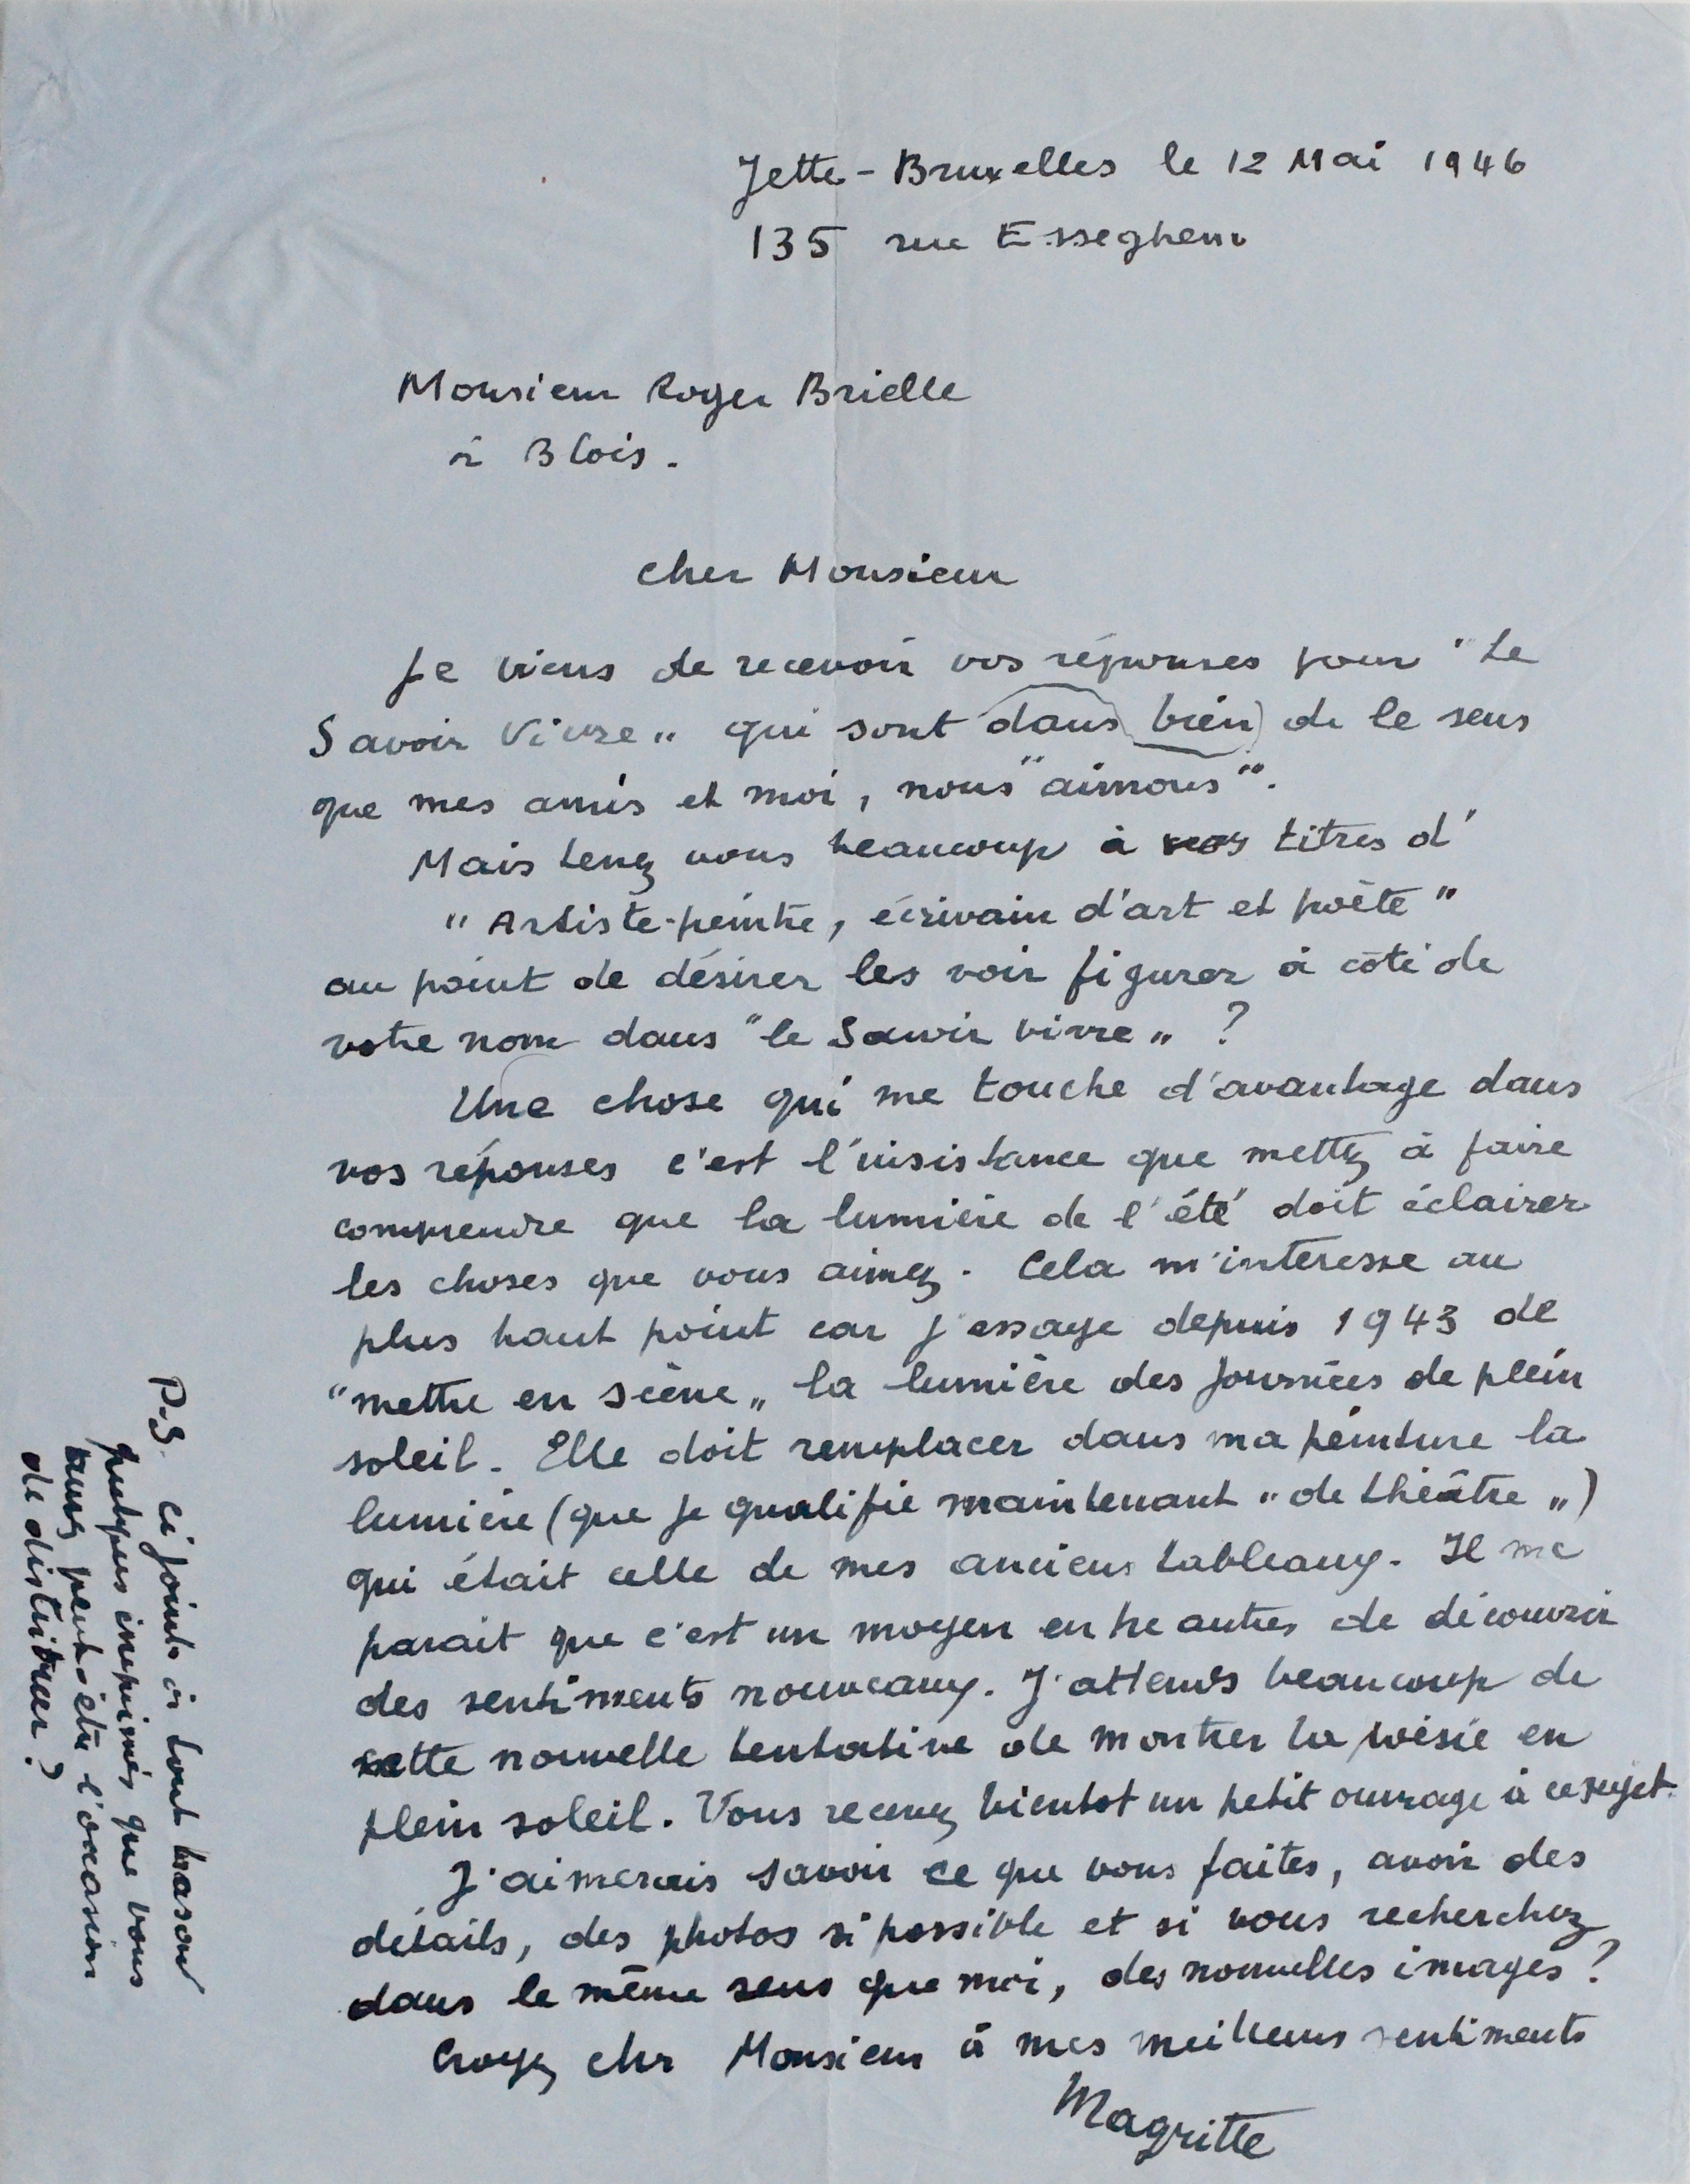 Jette-Bruxelles le 12 Mai 1946
135 rue Esseghem
Monsieur Roger Brielle
à Blois.
Cher Monsieur
Je viens de recevoir vos réponses pour "Le
Savoir Vivre" qui sont dans bien de le sens
que mes amis et moi, nous "aimons".
Mais tenez vous beaucoup à vos titres d'
"Artiste-peintre, écrivain d'art et poète"
au point de désirer les voir figurer à côté de
votre nom dans "le Savoir vivre" ?
Une chose qui me touche d'avantage dans
vos réponses c'est l'insistance que mettez à faire
comprendre que la lumière de l'été doit éclairer
les choses que vous aimez. Cela m'intéresse au
plus haut point car j'essaye depuis 1943 de
"mettre en scène" la lumière des journées de plein
soleil. Elle doit remplacer dans ma peinture la
lumière (que je qualifie maintenant "de théâtre")
qui était celle de mes anciens tableaux. Il me
parait que c'est un moyen entre autres de découvrir
des sentiments nouveaux. J'attends beaucoup de
cette nouvelle tentative de montrer la poésie en
plein soleil. Vous recevez bientot un petit ouvrage à ce sujet.
J'aimerais savoir ce que vous faites, avoir des
détails, des photos si possible et si vous recherchez
dans le même sens que moi, des nouvelles images ?
Croyez cher Monsieur à mes meilleurs sentiments
Magritte
P.S. ci joints à tout hasard
quelques imprimés que vous
aurez peut-être l'occasion
de distribuer ?